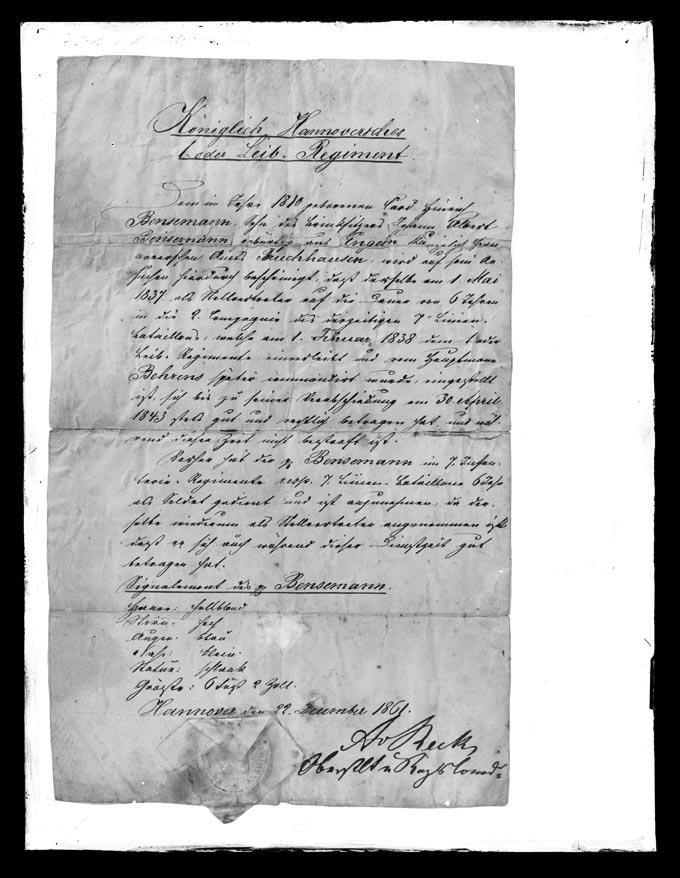 Königlich Hannoversches
1. oder Leib-Regiment.
Dem im Jahre 1810 geborenen Cord Hinrich
Bensemann, Sohn des Brinksitzers Johann Albert
Bensemann, gebürtig aus Engeln Königlich Han-
noverschen Amts Bruchhausen, wird auf sein An-
suchen hierdurch bescheinigt, daß derselbe am 1. Mai
1837 als Stellvertreter auf die Dauer von 6 Jahren
in die 2. Compagnie des derzeitigen 7. Linien-
Bataillons, welche am 1. Februar 1838 dem 1. oder
Leib-Regimente einverleibt und vom Hauptmann
Behrens später commandirt wurde, eingestellt
ist, sich bis zu seiner Verabschiedung am 30. April
1843 stets gut und rechtlich betragen hat, und wäh-
rend dieser Zeit nicht bestraft ist.
Vorher hat der p Bensemann im 7. Infan-
terie-Regimente resp. 7. Linien-Bataillone 6 Jahr
als Soldat gedient und ist anzunehmen, da der-
selbe wiederum als Stellvertreter angenommen ist,
daß er sich auch während dieser Dienstzeit gut
betragen hat.
Signalement des p Bensemann.
Haare: hellblond
Stirn: hoch
Augen: blau
Nase: klein
Statur: schlank
Größe: 6 Fuß 2 Zoll.
Hannover den 22. December 1861.
Oberstlt u Regts Comd=